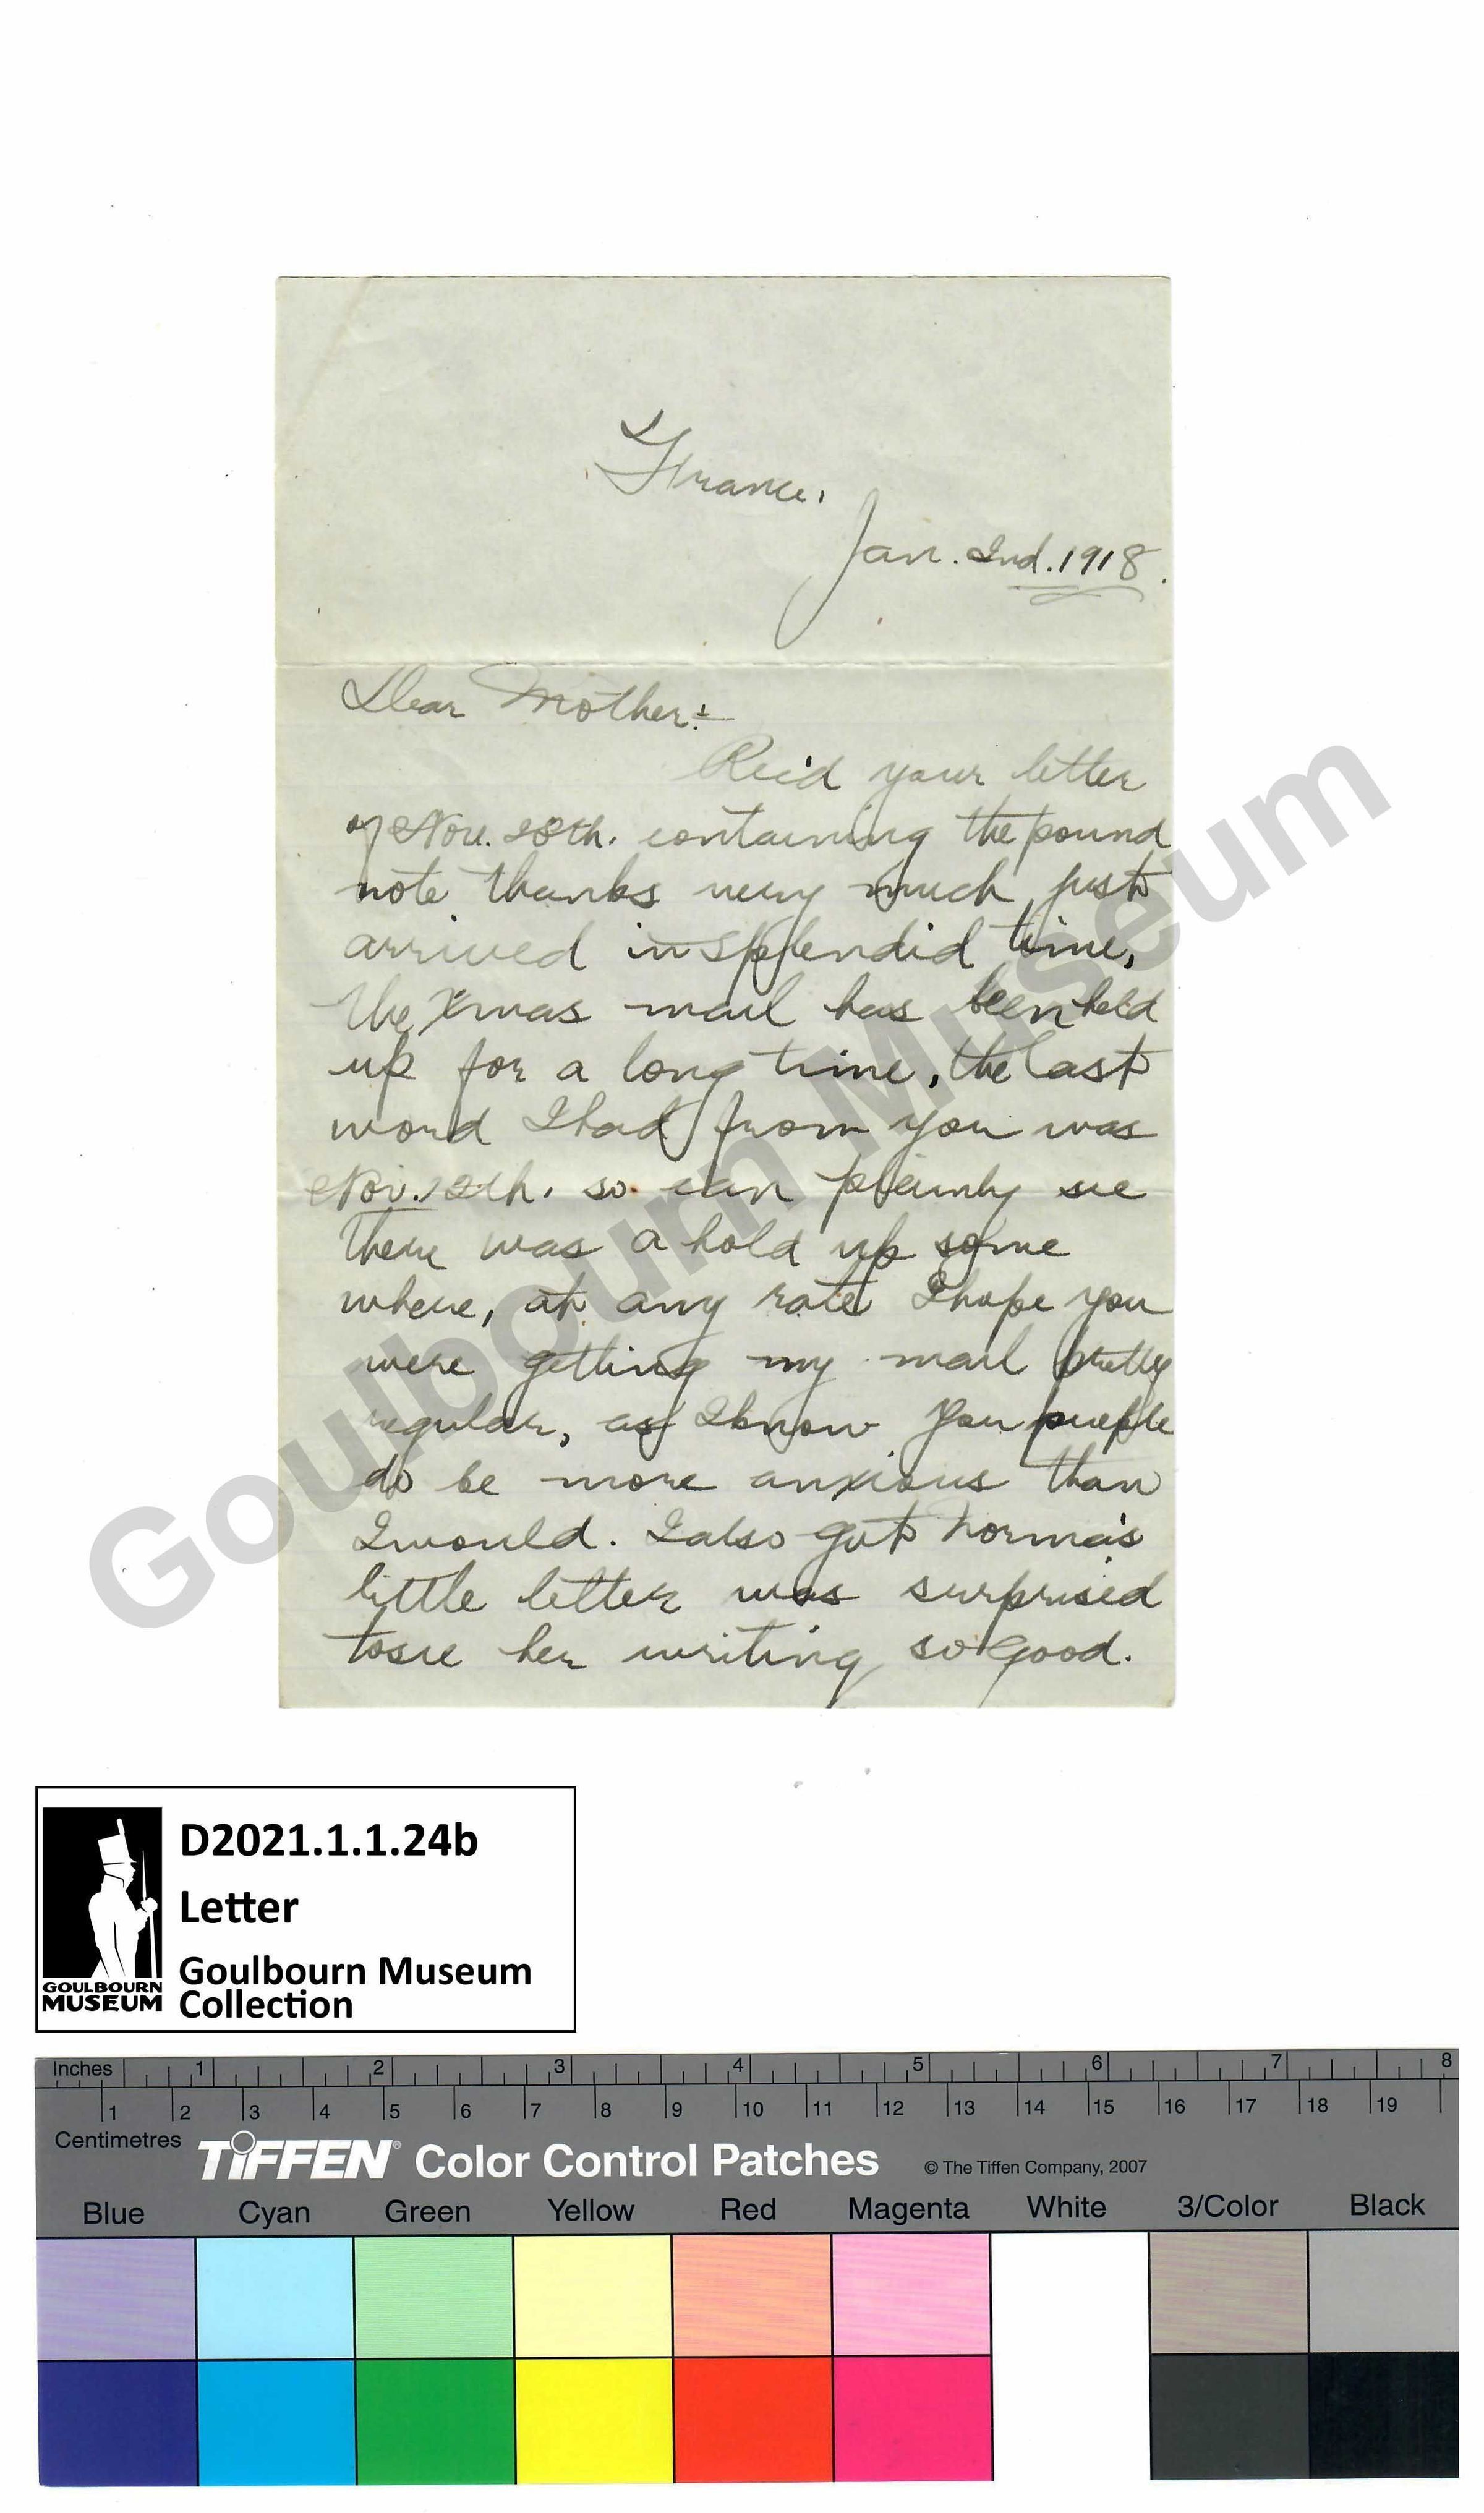 France.
Jan. 2nd. 1918.
Dear Mother:-
Rec'd your letter
of Nov. 28th. containing the pound
note thanks very much just
arrived in splendid time,
the Xmas mail has been held
up for a long time, the last
word I had from you was
Nov. 12th. so can plainly see
there was a hold up some
where, at any rate I hope you
were getting my mail pretty
regular, as I know you people
do be more anxious than
I would. I also got Norma's
little letter was surprised
to see her writing so good.
Goulbourn Museum
D2021.1.1.24b
Letter
Goulbourn Museum
Collection
GOULBOURN
MUSEUM
Inches 1 2 3 4 5 6 7 8
1 2 3 4 5 6 7 8 9 10 11 12 13 14 15 16 17 18 19
Centimetres
TIFFEN® Color Control Patches © The Tiffen Company, 2007
Blue Cyan Green Yellow Red Magenta White 3/Color Black